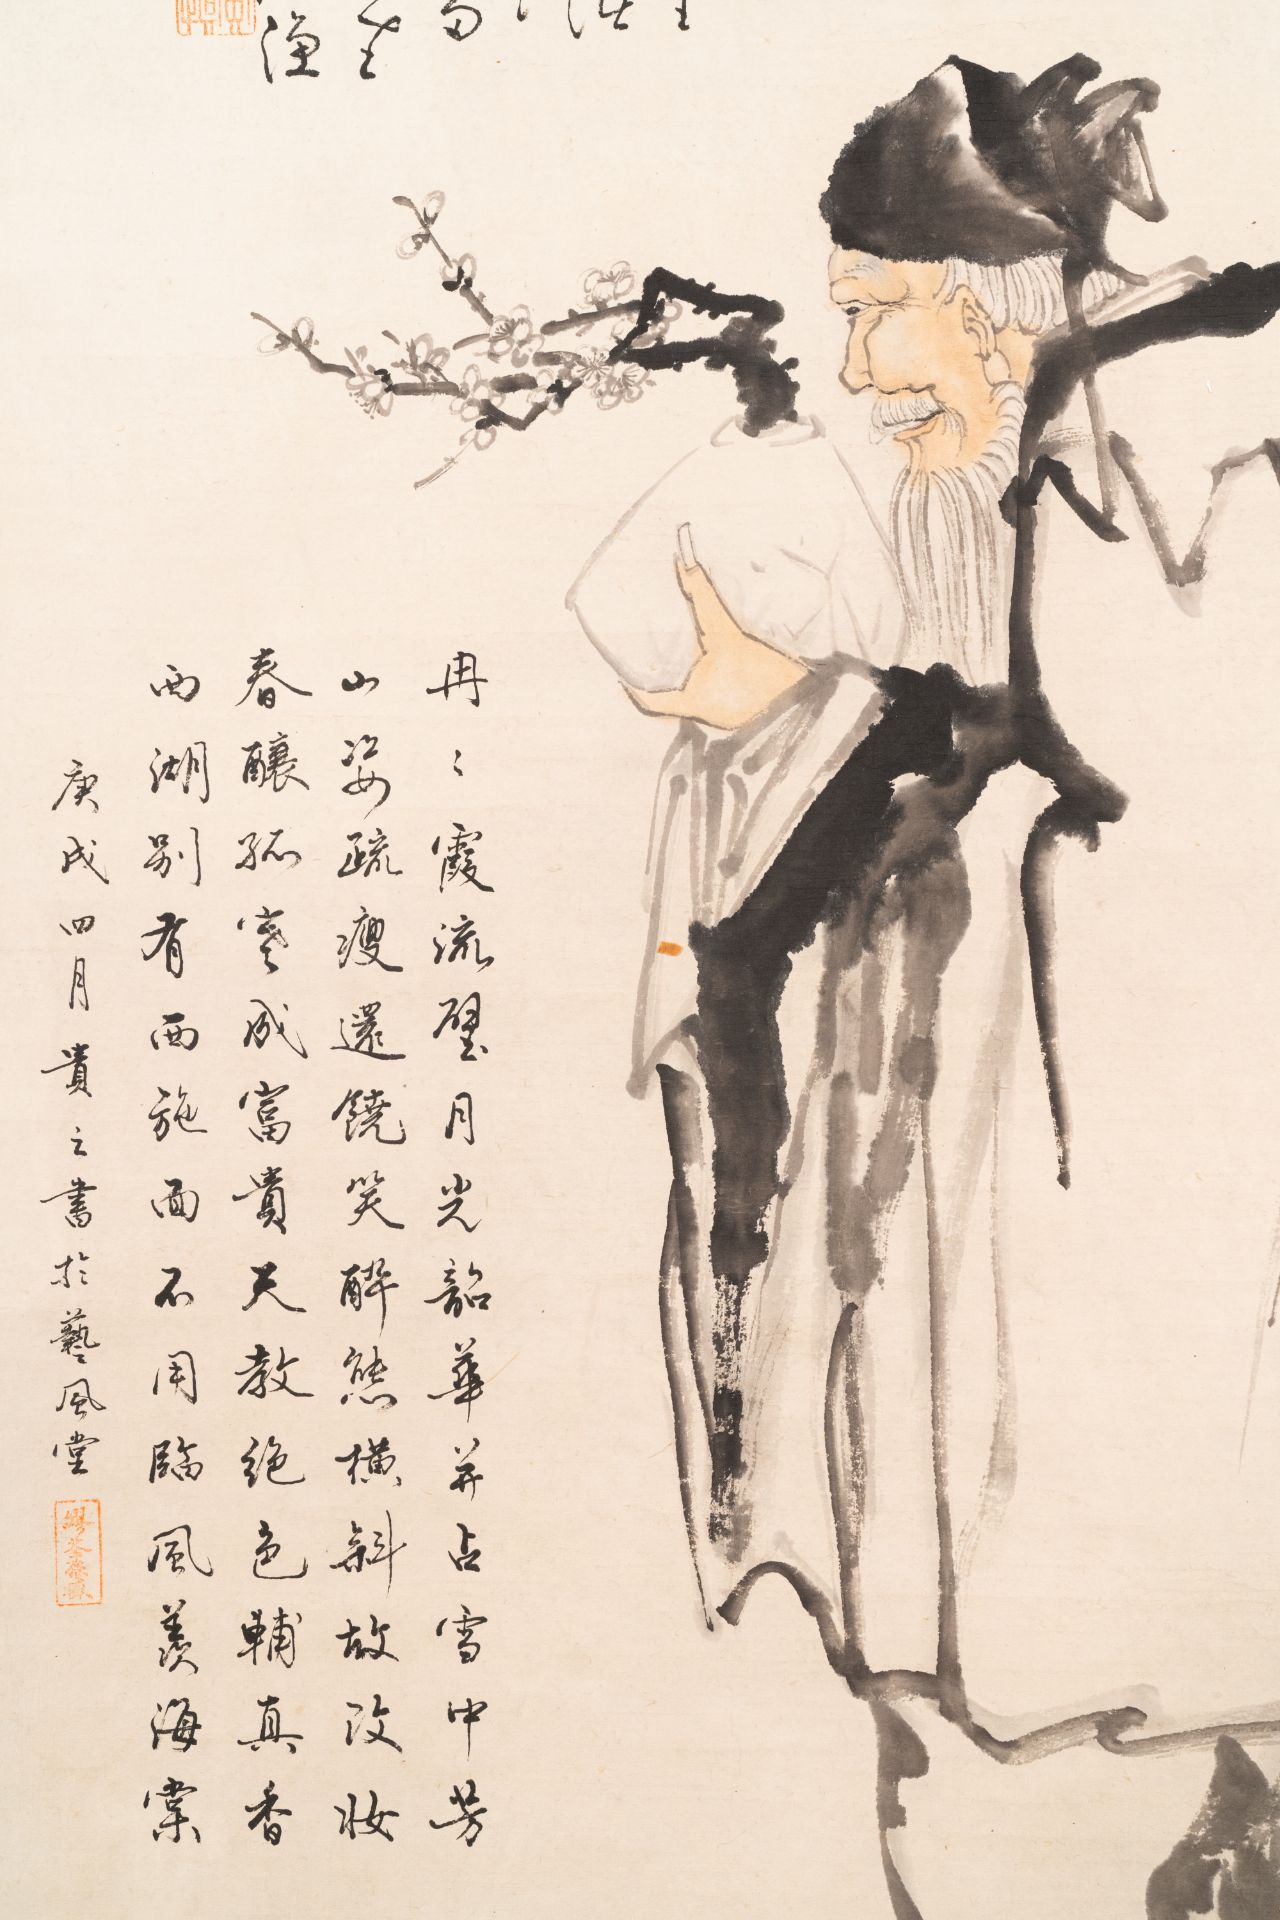 冉〻霞流璧月光韶華并占雪中芳
山姿疏瘦還饒笑醉態橫斜故改妝
春釀孤寒成富貴天教絕色輔真香
西湖別有西施面不用臨風羨海棠
庚戌四月貴之書於藝風堂